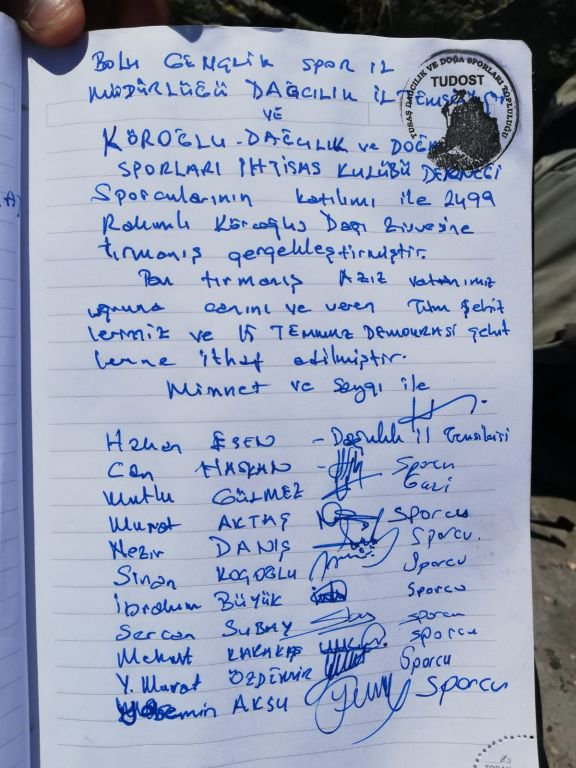 BOLU GENÇLİK SPOR İL
MÜDÜRLÜĞÜ DAĞCILIK İL
VE
KÖROĞLU - DAĞCILIK VE DOĞA
SPORLARI İHTİSAS KULÜBÜ DERNEĞİ
Sporcularının katılımı ile 2499
Rakımlı Köroğlu Dağı Zirvesine
tırmanış gerçekleştirmiştir.
Bu tırmanış AZİZ vatanımız
uğruna canını ve veren Tüm Şehit
lerimiz ve 15 TEMMUZ DEMOKRASİ Şehit
lerine ithaf edilmiştir.
Minnet ve Saygı ile
Hakan ESEN - Dağcılık İl Temsilcisi
Can - Sporcu
Mutlu GÜLMEZ Gazi
Murat AKTAŞ Sporcu
Nezir DANIŞ Sporcu.
Sinan KOÇOĞLU Sporcu
İbrahim BÜYÜK Sporcu
Sercan SUBAY Sporcu
Mehmet KARAKAŞ Sporcu
Y. Murat ÖZDEMİR Sporcu
AKSU Sporcu
TUSAŞ DAĞCILIK VE DOĞA SPORLARI TOPLULUĞU
TUDOST